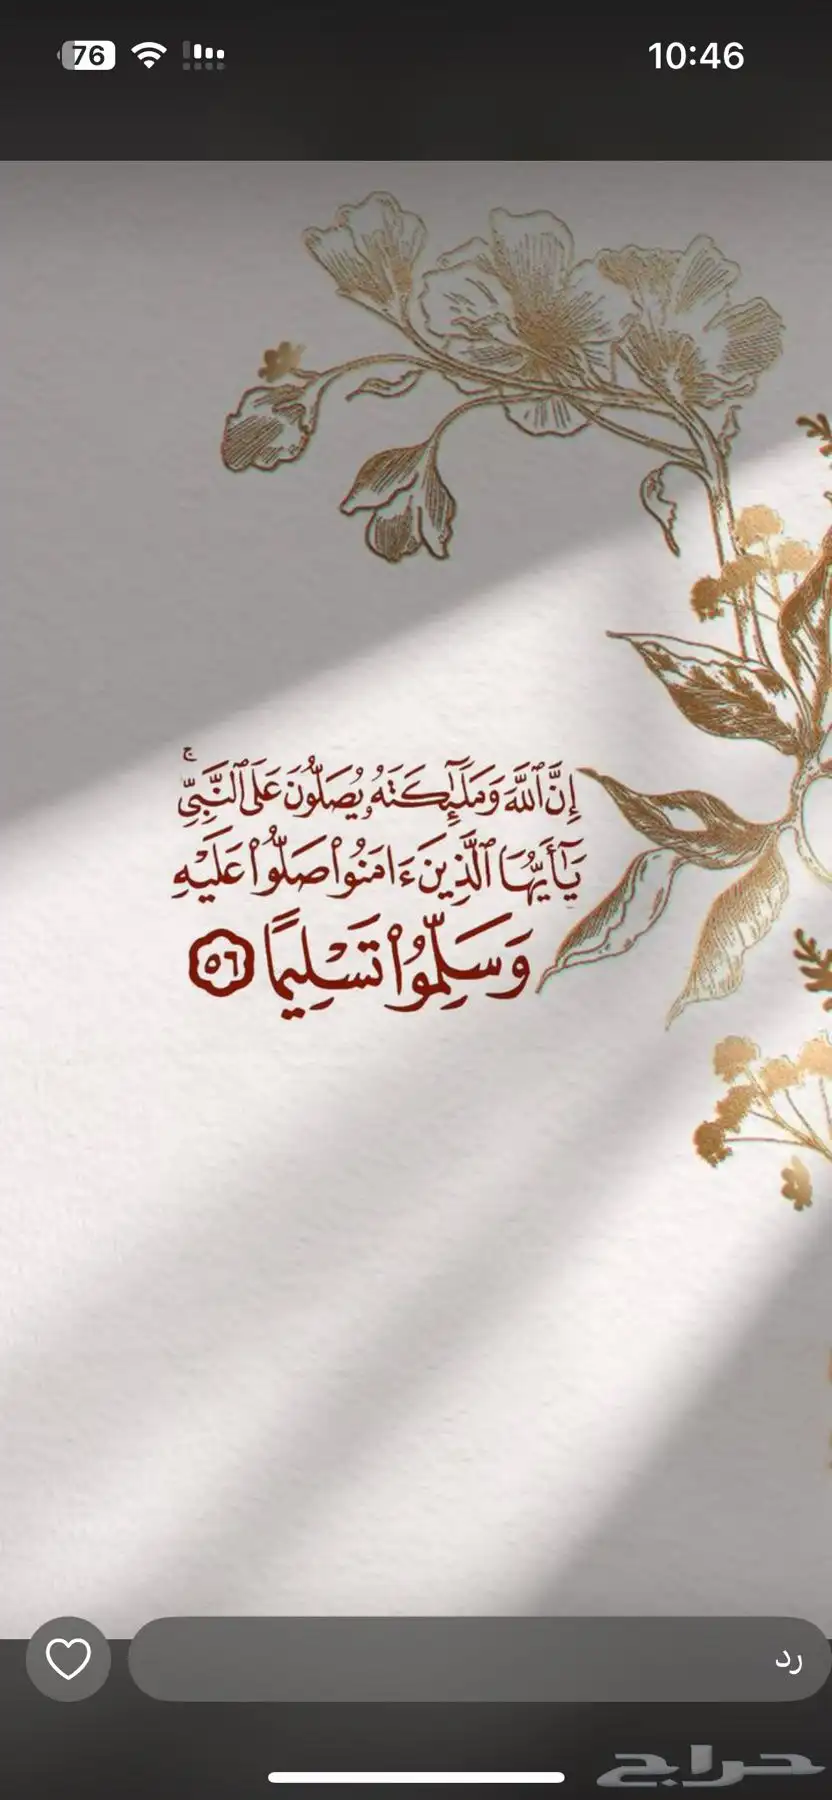 76
10:46
إِنَّ ٱللَّهَ وَمَلَٰٓئِكَتَهُۥ يُصَلُّونَ عَلَى ٱلنَّبِيِّۚ
يَٰٓأَيُّهَا ٱلَّذِينَ ءَامَنُواْ صَلُّواْ عَلَيْهِ
وَسَلِّمُواْ تَسْلِيمًا ٥٦
رد
حراج